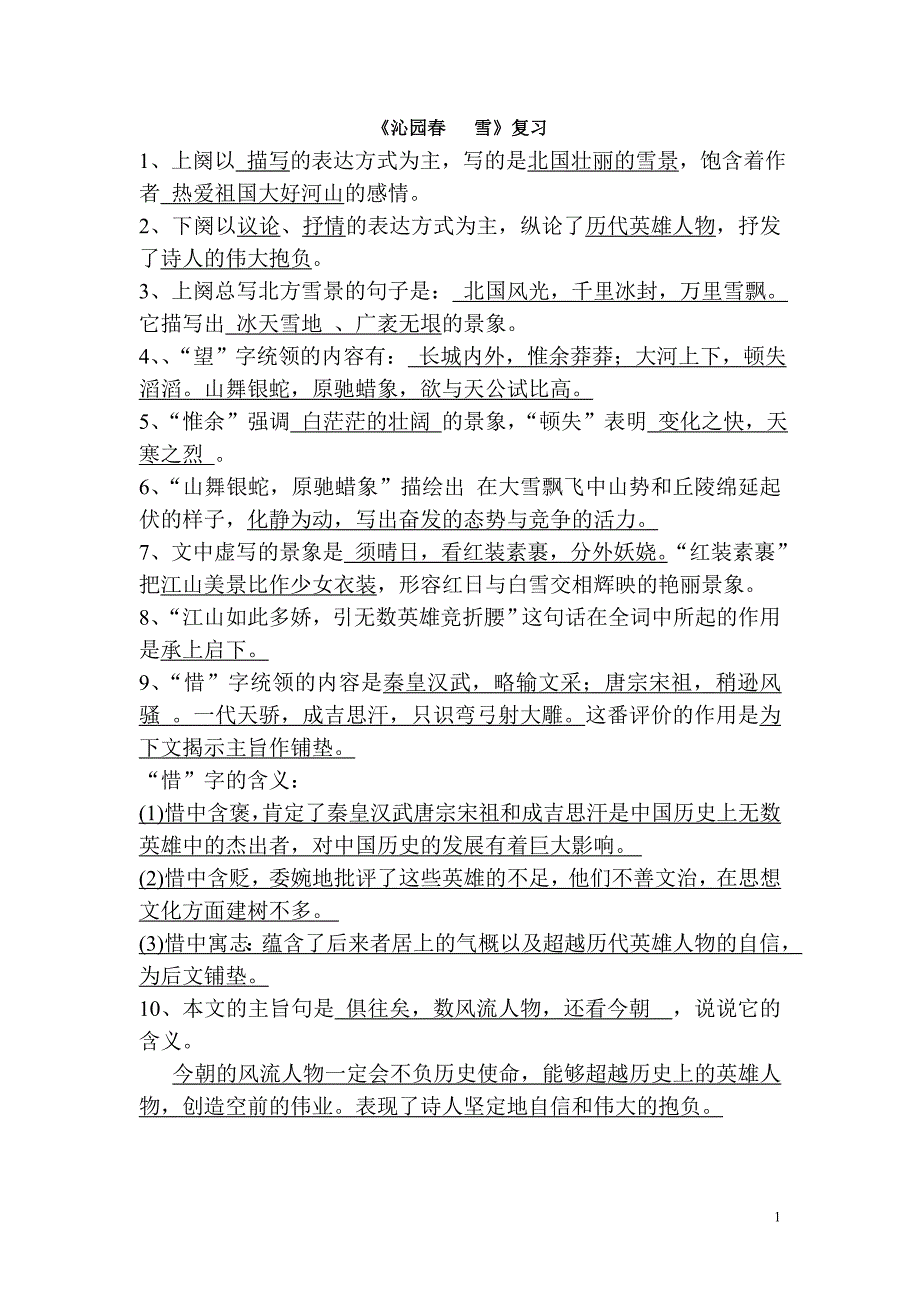 《沁园春 雪》复习
1、上阕以 描写的表达方式为主，写的是北国壮丽的雪景，饱含着作
者 热爱祖国大好河山的感情。
2、下阕以议论、抒情的表达方式为主，纵论了历代英雄人物，抒发
了诗人的伟大抱负。
3、上阕总写北方雪景的句子是： 北国风光，千里冰封，万里雪飘。
它描写出 冰天雪地 、广袤无垠的景象。
4、、“望”字统领的内容有： 长城内外，惟余莽莽；大河上下，顿失
滔滔。山舞银蛇，原驰蜡象，欲与天公试比高。
5、“惟余”强调 白茫茫的壮阔 的景象，“顿失”表明 变化之快，天
寒之烈 。
6、“山舞银蛇，原驰蜡象”描绘出 在大雪飘飞中山势和丘陵绵延起
伏的样子，化静为动，写出奋发的态势与竞争的活力。
7、文中虚写的景象是 须晴日，看红装素裹，分外妖娆。“红装素裹”
把江山美景比作少女衣装，形容红日与白雪交相辉映的艳丽景象。
8、“江山如此多娇，引无数英雄竞折腰”这句话在全词中所起的作用
是承上启下。
9、“惜”字统领的内容是秦皇汉武，略输文采；唐宗宋祖，稍逊风
骚 。一代天骄，成吉思汗，只识弯弓射大雕。这番评价的作用是为
下文揭示主旨作铺垫。
“惜”字的含义：
(1)惜中含褒，肯定了秦皇汉武唐宗宋祖和成吉思汗是中国历史上无数
英雄中的杰出者，对中国历史的发展有着巨大影响。
(2)惜中含贬，委婉地批评了这些英雄的不足，他们不善文治，在思想
文化方面建树不多。
(3)惜中寓志：蕴含了后来者居上的气概以及超越历代英雄人物的自信，
为后文铺垫。
10、本文的主旨句是 俱往矣，数风流人物，还看今朝 ，说说它的
含义。
今朝的风流人物一定会不负历史使命，能够超越历史上的英雄人
物，创造空前的伟业。表现了诗人坚定地自信和伟大的抱负。
1